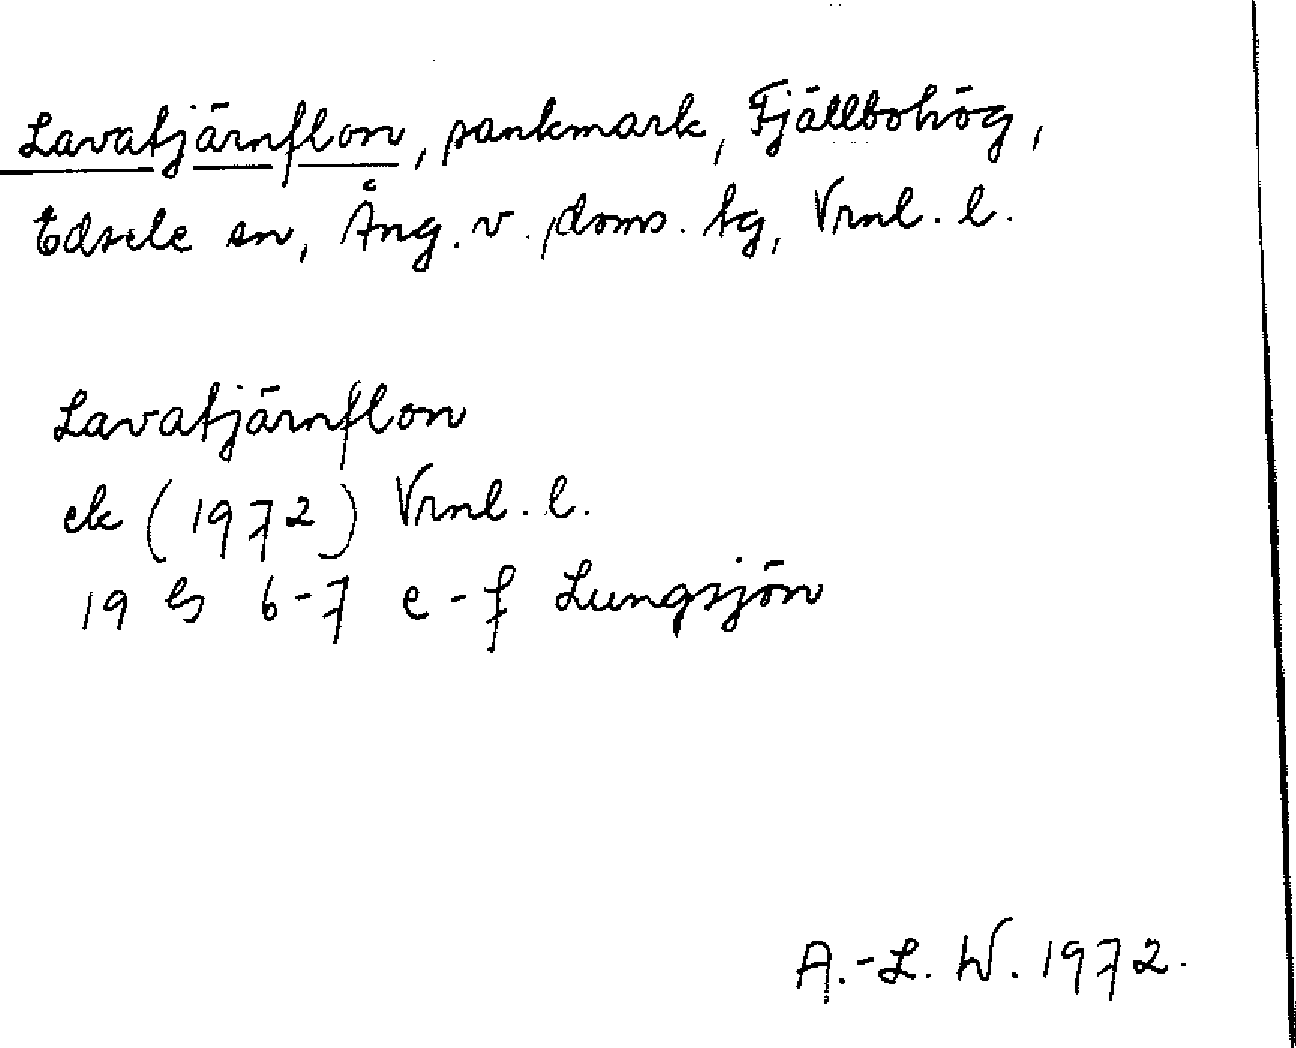 Lavatjärnflon, sankmark, Fjällbohög,
Edsele sn, Ång. v. doms. tg, Vrnl. l.
Lavatjärnflon
ek (1972) Vrnl. l.
19 G 6-7 e-f Lungsjön
A.-L. W. 1972.